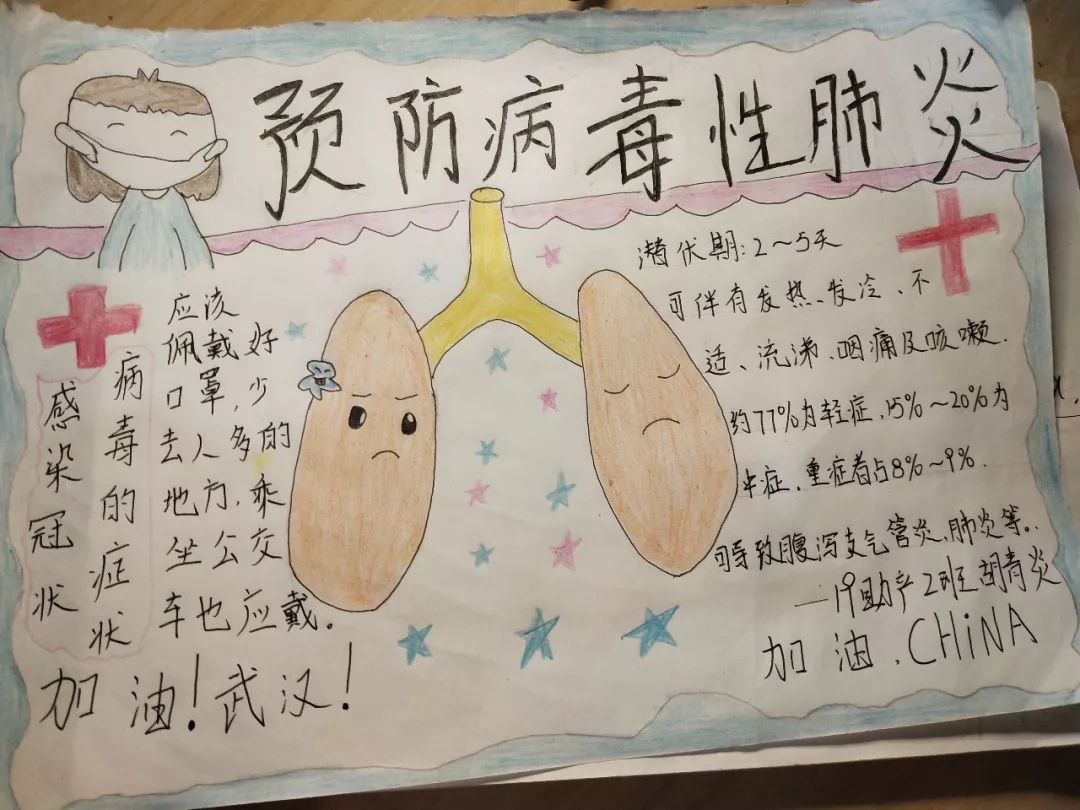 预防病毒性肺炎
感染冠状
病毒的症状
应该
佩戴好
口罩,少
去人多的
地方,乘
坐公交
车也应戴。
加油!武汉!
潜伏期:2~5天
可伴有发热、发冷、不
适、流涕、咽痛及咳嗽.
约77%为轻症,15%~20%为
症,重症者占8%~9%.
可导致腹泻支气管炎,肺炎等..
—19助产2班胡青炎
加油.CHiNA